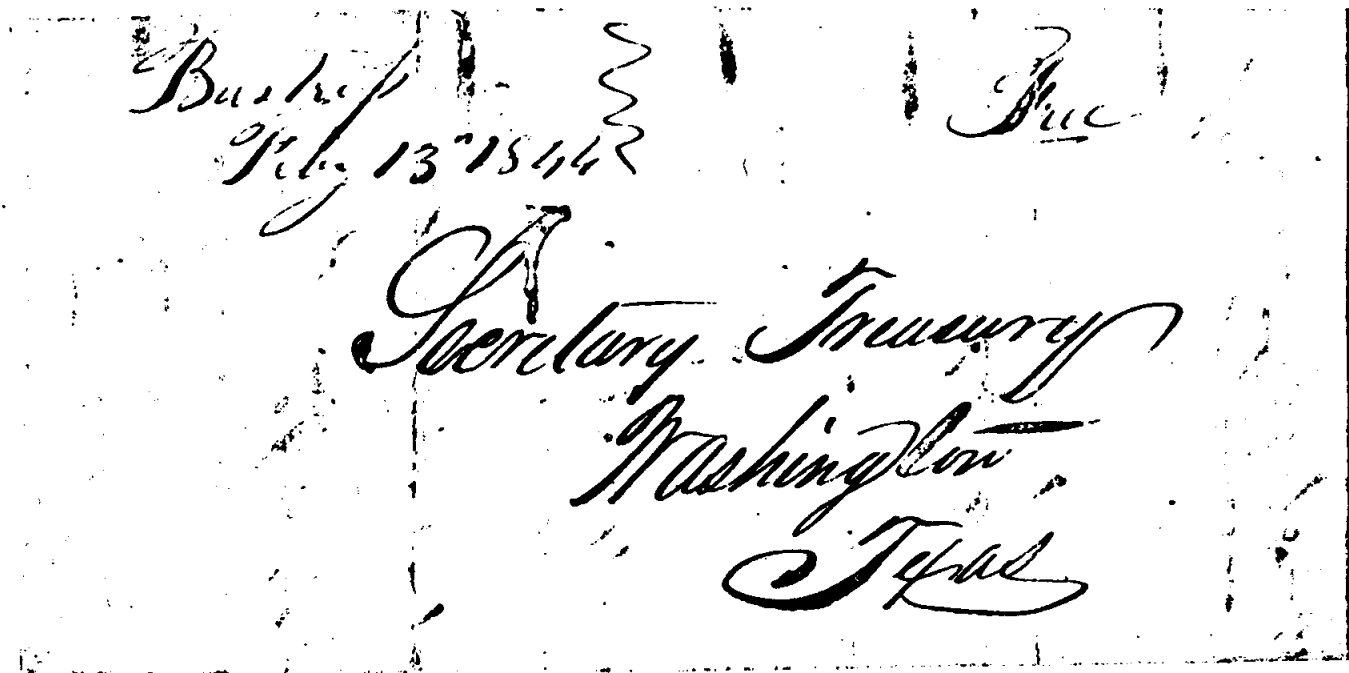 Bastrop Free
Feby 13th 1844
Secretary Treasury
Washington
Texas